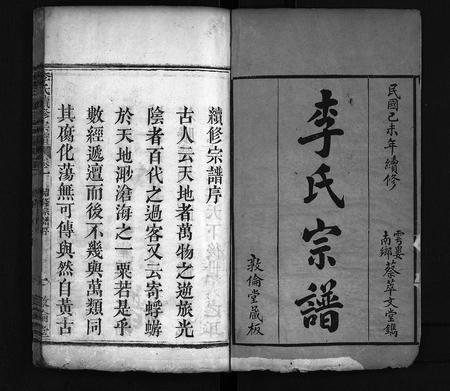 民國己未年續修
李氏宗譜
南鄉蔡萃文堂鐫
敦倫堂藏板
續修宗譜序
古人云天地者萬物之逆旅光
陰者百代之過客又云寄蜉蝣
於天地渺滄海之一粟若是乎
數經遞嬗而後不幾與萬類同
其腐化蕩無可傳與然自黃古